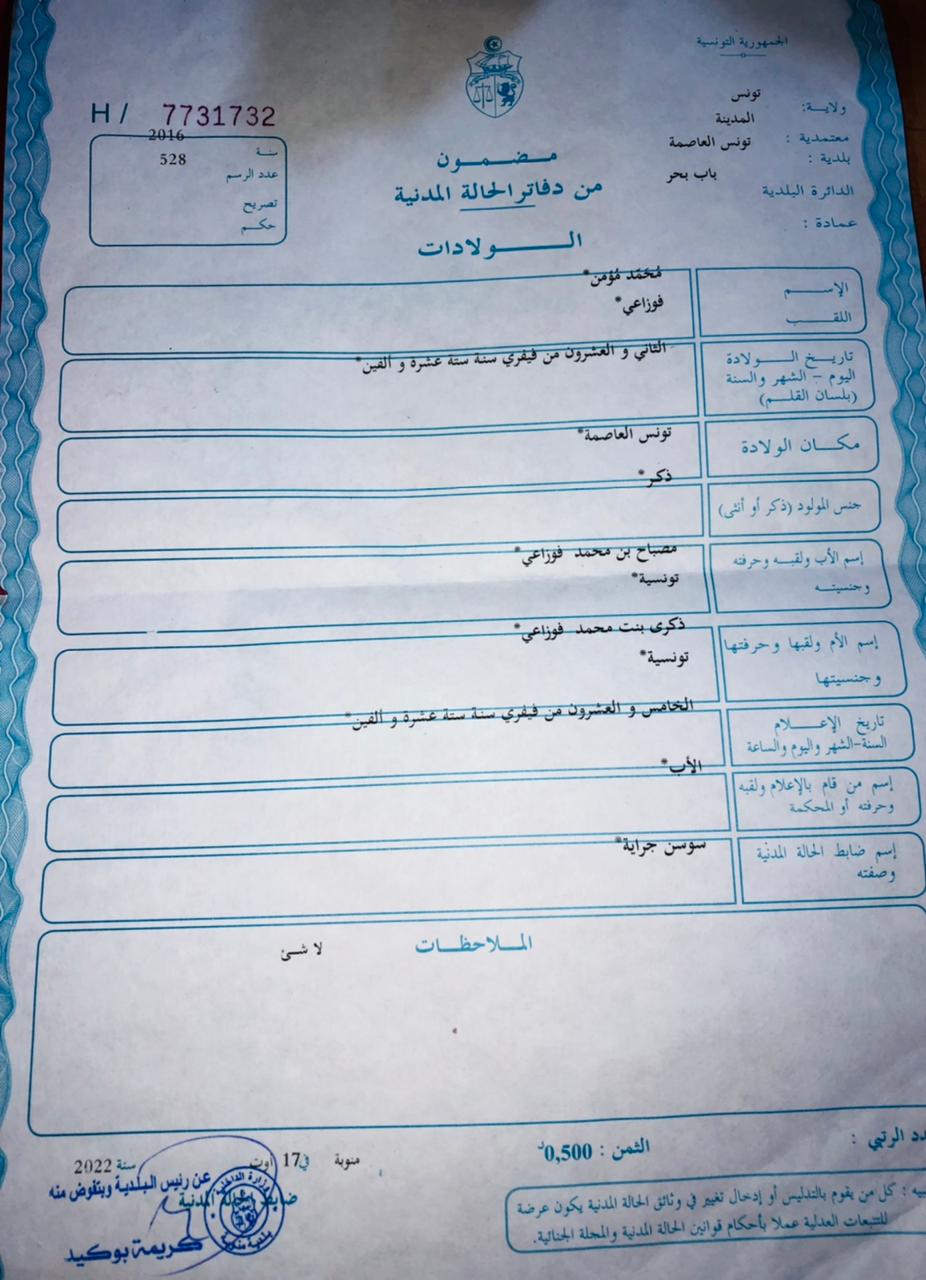 الجمهورية التونسية
ولاية: تونس
معتمدية : المدينة
بلدية : تونس العاصمة
الدائرة البلدية باب بحر
عمادة :
H / 7731732
سنة 2016
عدد الرسم 528
تصريح
حكم
مضمون
من دفاتر الحالة المدنية
الولادات
الإسم مُحَمّد مُؤمن*
اللقب فوزاعي*
تاريخ الولادة الثاني و العشرون من فيفري سنة ستة عشرة و ألفين*
اليوم - الشهر والسنة
(بلسان القلم)
مكان الولادة تونس العاصمة*
جنس المولود (ذكر أو أنثى) ذكر*
إسم الأب ولقبه وحرفته مصباح بن محمد فوزاعي*
وجنسيته تونسية*
إسم الأم ولقبها وحرفتها ذكرى بنت محمد فوزاعي*
وجنسيتها تونسية*
تاريخ الإعلام الخامس و العشرون من فيفري سنة ستة عشرة و ألفين*
السنة-الشهر واليوم والساعة
إسم من قام بالإعلام ولقبه الأب*
وحرفته أو المحكمة
إسم ضابط الحالة المدنية سوسن جراية*
وصفته
الملاحظات
لا شئ
الرتبي :
الثمن : 0,500د
منوبة في 17 اوت سنة 2022
ضابط الحالة المدنية
عن رئيس البلدية وبتفوض منه
كريمة بوكيد
كل من يقوم بالتدليس أو إدخال تغيير في وثائق الحالة المدنية يكون عرضة
للتتبعات العدلية عملا بأحكام قوانين الحالة المدنية والمجلة الجنائية.